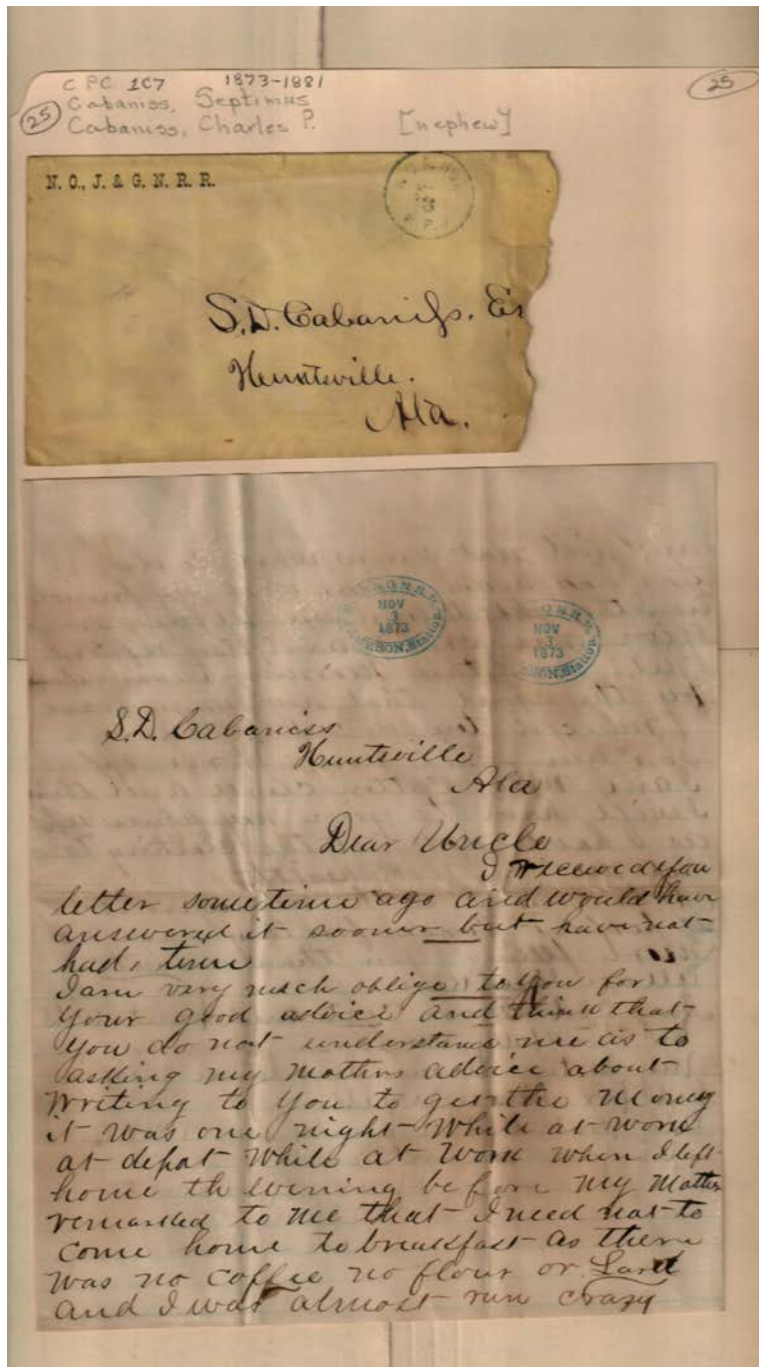 CPC 1C7 1873-1881
25
Cabaniss, Septimus
25
Cabaniss, Charles P. [nephew]
N. O., J. & G. N. R. R.
3
S.D. Cabaniss. Es
Huntsville.
Ala.
NOV
3
1873
NOV
3
1873
S.D. Cabaniss
Huntsville
Ala
Dear Uncle
I received you
letter sometime ago and would have
answered it sooner but have not
had time
I am very much oblige to you for
your good advice and think that
you do not understand me as to
asking my mothers advice about
writing to you to get the money
it was one night while at work
at depot while at work when I left
home th evening before my Mother
remarked to me that I need not to
come home to breakfast as there
was no coffee no flour or Lard
and I was almost run crazy